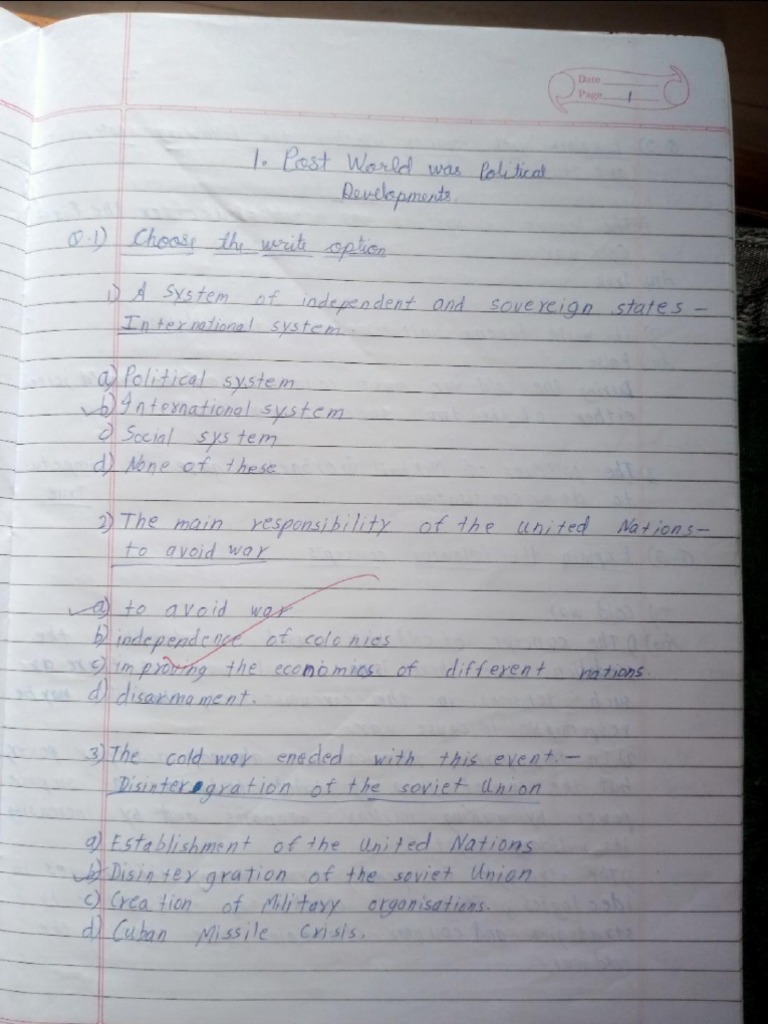 Date
Page 1
1. Post World war Political
Developments.
Q.1) Choose the write option
1) A system of independent and sovereign states –
International system
a) Political system
b) International system
c) Social system
d) None of these
2) The main responsibility of the united Nations–
to avoid war
a) to avoid war
b) independence of colonies
c) improving the economics of different nations.
d) disarmament.
3) The cold war eneded with this event.–
Disintergration of the soviet Union
a) Establishment of the United Nations
b) Disintergration of the soviet Union
c) Creation of Military organisations.
d) Cuban Missile Crisis.